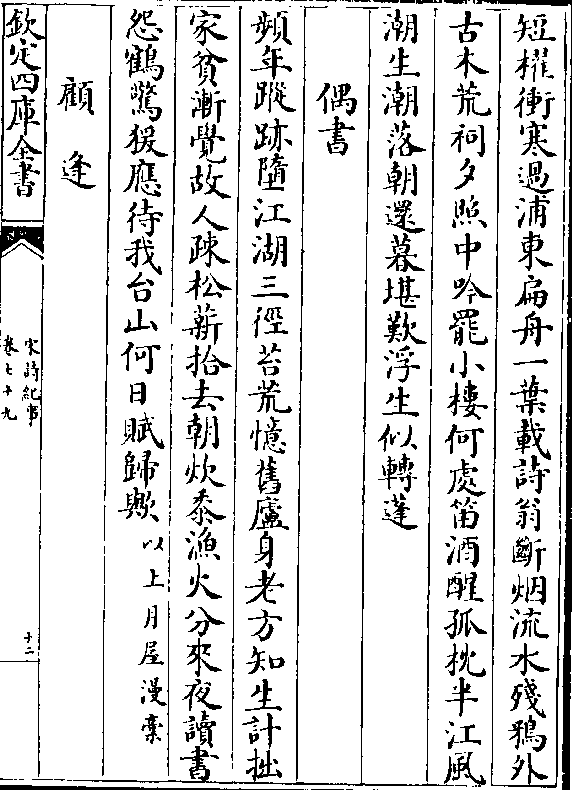 短櫂衝寒過浦東扁舟一葉載詩翁斷烟流水殘鴉外
古木荒祠夕照中吟罷小樓何處笛酒醒孤枕半江風
潮生潮落朝還暮堪歎浮生似轉蓬
偶書
頻年蹤跡墮江湖三徑苔荒憶舊廬身老方知生計拙
家貧漸覺故人疎松薪拾去朝炊黍漁火分來夜讀書
怨鶴驚猨應待我台山何日賦歸歟以上月屋漫藁
顧逢
欽定四庫全書
宋詩紀事
卷七十九
十二